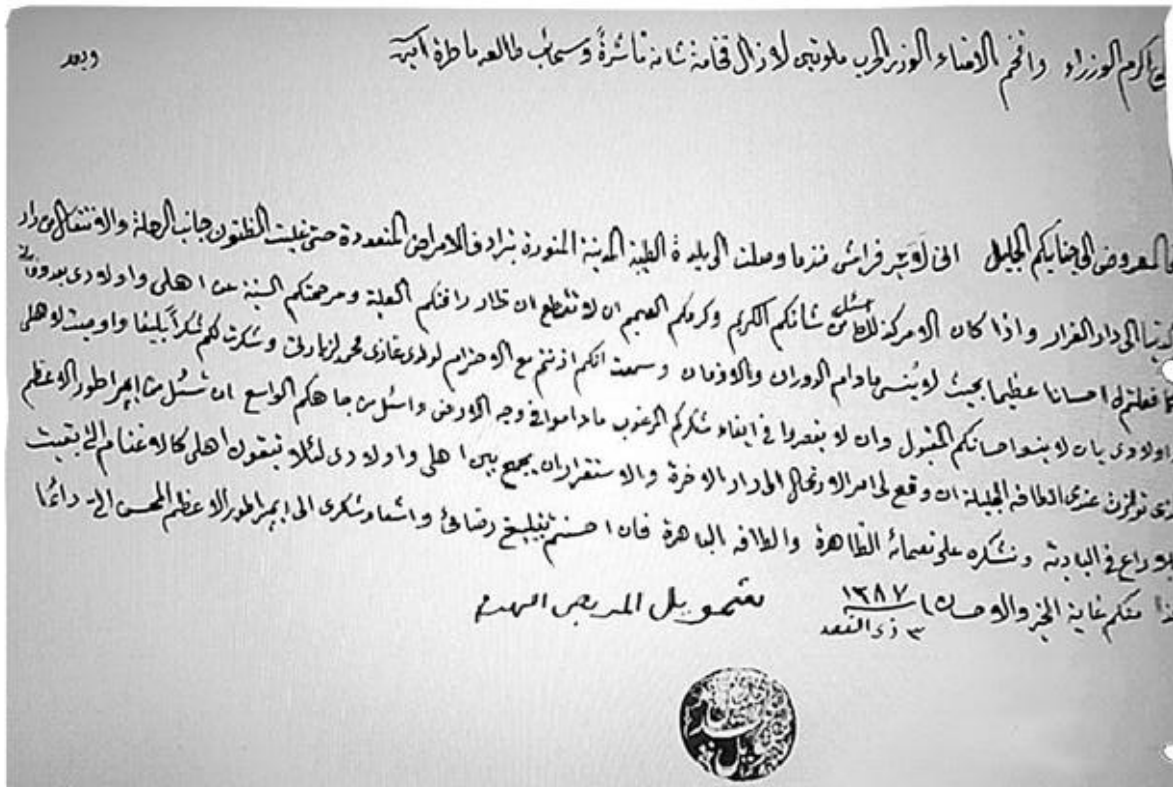 اكرم الوزراء وافخم الامناء الوزير الحرب ملوتين لا زال فخامة شانه ناشرةً وسحاب طالعه ماطرة آمين وبعد
المعروض الى جنابكم الجليل انى لوجير فراش منذما وصلت الى بلدة الطيبة المدينة المنورة بترادف الامراض المتعددة حتى غلبت المظنون جانب الرحلة والانتقال من دار
الدنيا الى دار القرار واذا كان الامر كذلك شانكم الكريم وكرمكم العميم ان لا تنقطع انظار رافتكم العلية ومرحمتكم السنية عن اهلى واولادى بعد وفاتى
فعلتم لى احسانا عظيما بحيث لا يُنسى مادام الدوران والازمان وسمعت انكم اذنتم مع الاحترام لولدى غازى محمد لزيارتى وشكرت لكم شكراً بليغا واوصيت لاهلى
واولادى بان لا ينسوا احسانكم المقبول وان لا يقصروا فى ايفاء شكركم المرغوب ماداموا فى وجه الارض واسئل من جاهكم الواسع ان تسئل من ايمپراطور الاعظم
الطافه الجميلة ان وقع لى امر الارتحال الى دار الاخرة والاستقرار ان يجمع بين اهلى واولادى لئلا يبقون اهلى كالاغنام التى بقيت
بلا راع فى البادية ونشكره على نعمائه الظاهرة والطافه الباهرة فان احسنتم بتبليغ رضائى واشعار شكرى الى ايمپراطور الاعظم المحسن الىّ دائما
منكم غاية الخير والاحسان ١٢٨٧ شمويل المريض الهرم
٣ ذى القعد